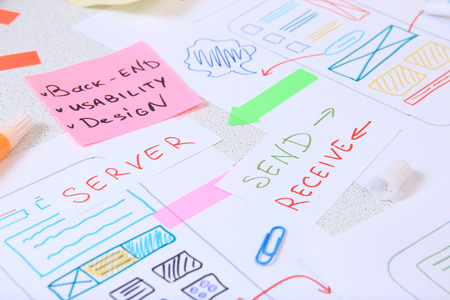 Back-END
USABILITY
DESIGN
SERVER
SEND
RECEIVE